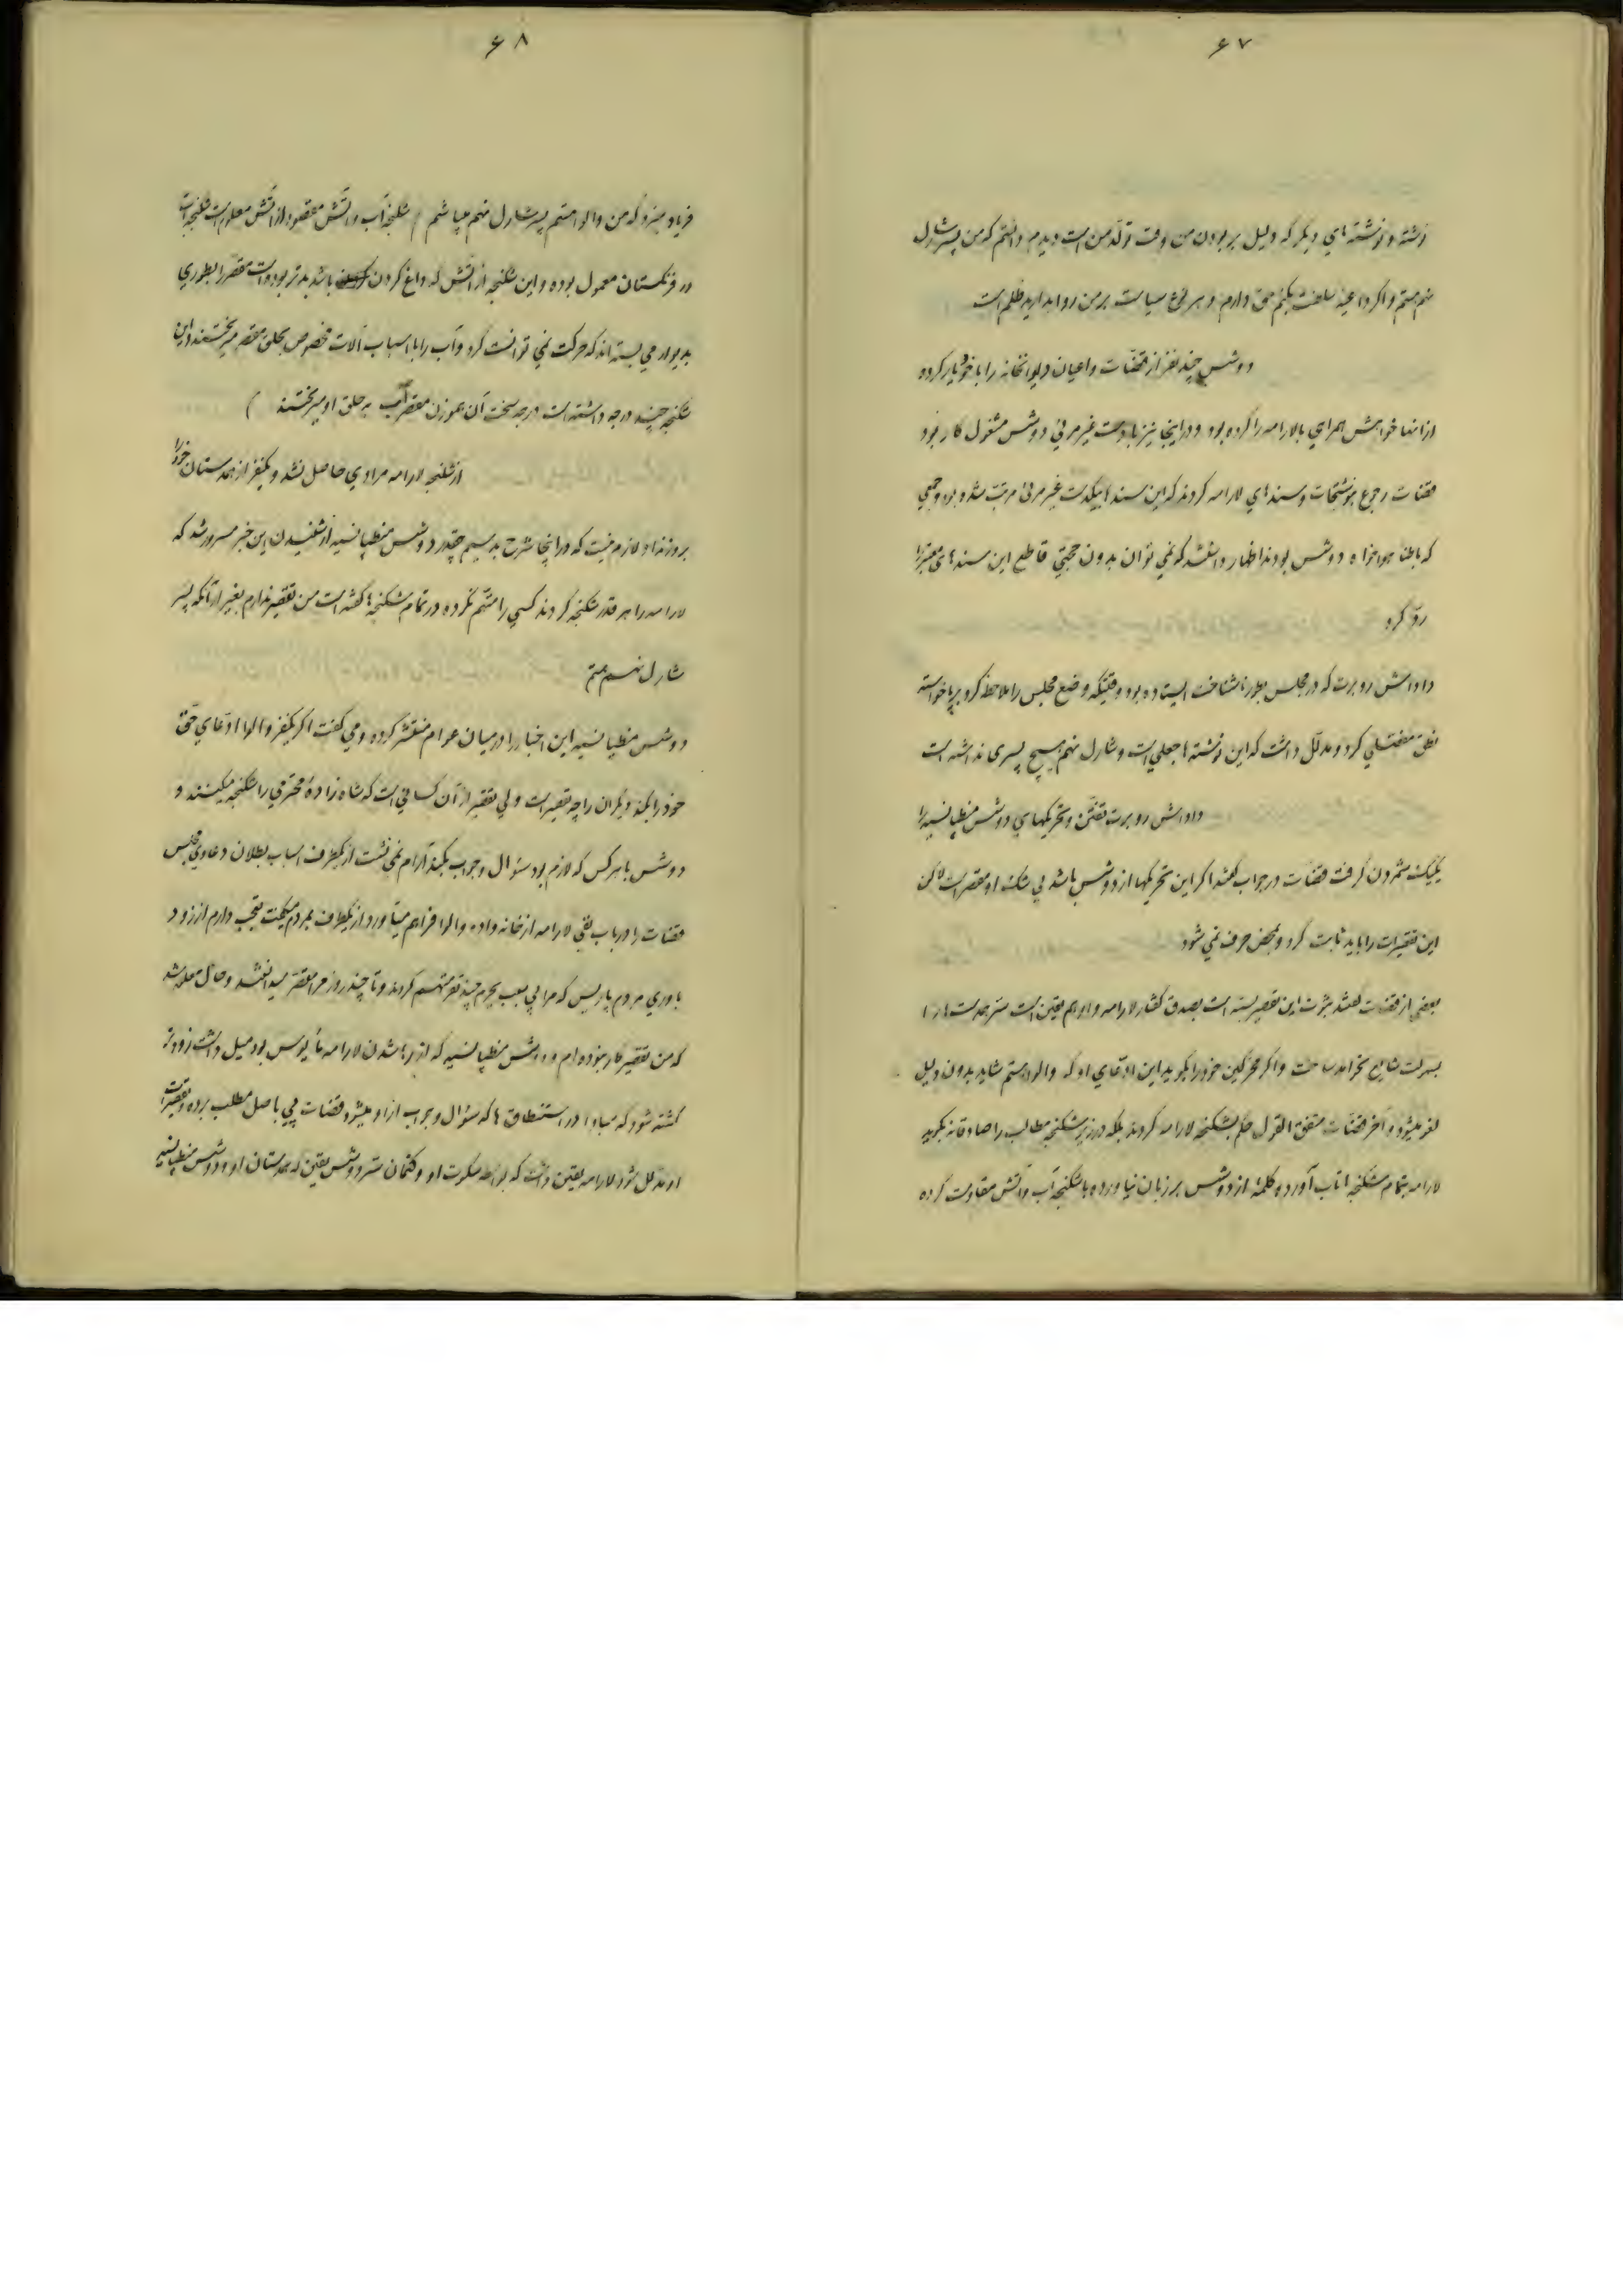 ۶۷
نوشته و نوشته های دیگر که دلیل بر بودن من وقت تولد من است دیدم و دانستم که من پسر شارل
نهم هستم و اگر داعیه سلطنت بکنم حق دارم و هر نوع سیاست بر من روا بدارید ظلم است
دوشس چند نفر از قضات و اعیان دیوانخانه را با خود یار کرده
از آنها خواهش همراهی با لارامه را کرده بود و در اینجا نیز با دست غیر مرئی دوشس مشغول کار بود
قضات رجوع بنوشتجات و سندهای لارامه کردند که این سندها بیکدست غیر مرئی مرتب شده بود و جمعی
که باطنا هواخواه دوشس بودند اظهار داشتند که نمی توان بدون حجتی قاطع این سندهای معتبر را
رد کرد
داوانش روبرت که در مجلس بطور ناشناخت ایستاده بود وقتیکه وضع مجلس را ملاحظه کرد بپا خواسته
نطق مفصلی کرد و مدلل داشت که این نوشته ها جعلی است و شارل نهم هیچ پسری نداشته است
داوانش روبرت تفتن و تحریکهای دوشس منطپانسیه را
یکیک شمردن گرفت قضات در جواب گفتند اگر این تحریکها از دوشس باشد بی شک او مقصر است لاکن
این تقصیرات را باید ثابت کرد و بمحض حرف نمی شود
بعضی از قضات گفتند ثبوت این تقصیر بسته است بصدق گفتار لارامه و او هم یقین است سر همدستها را
بسرعت شایع نخواهد ساخت و اگر محرکین خود را نگوید این ادعای او که والوا هستم شاید بدون دلیل
لغو میشود و آخر قضات متفق القول حکم بشکنجه لارامه کردند بلکه در زیر شکنجه مطالب را صادقانه بگوید
لارامه بتمام شکنجه ها تاب آورد و کلمه از دوشس بر زبان نیاورده با شکنجه آب و آتش مقاومت کرده
۶۸
فریاد میزد که من والوا هستم پسر شارل نهم میباشم ( شکنجه آب و آتش مقصود از آتش معلوم است شکنجه آب
در فرنگستان معمول بوده و این شکنجه از آتش که داغ کردن باشد بدتر بوده است مقصر را بطوری
بدیوار می بسته اند که حرکت نمی توانست کرد و آب را با اسباب آلات مخصوص بحلق مقصر میریختند این
شکنجه چند درجه داشته است درجه سخت آن بموزن مقصر آب به حلق او میریختند )
از شکنجه لارامه مرادی حاصل نشد و یکنفر از همدستان خود را
بروز نداد لازم نیست که در اینجا شرح بدهیم چقدر دوشس منطپانسیه از شنیدن این خبر مسرور شد که
لارامه را هر قدر شکنجه کردند کسی را متهم نکرده در تمام شکنجه ها گفته است من تقصیر ندارم بغیر از آنکه پسر
شارل نهم هستم
دوشس منطپانسیه این اخبار را در میان عوام منتشر کرده و می گفت اگر یکنفر والوا ادعای حق
خود را بکند دیگران را چه تقصیر است ولی تقصیر از آن کسانی است که شاه زاده محترمی را شکنجه میکنند و
دوشس با هر کس که لازم بود سؤال و جواب بکند آرام نمی نشست از یکطرف اسباب بطلان دعاوی مجلس
قضات را در باب نفی لارامه از خانه واده والوا فراهم میآورد از یکطرف بمردم میگفت تعجب دارم از زود
باوری مردم پاریس که مرا بی سبب بجرم چند نفر متهم کردند و تا چند روز مرا مقصر میدانستند و حال معلوم شد
که من تقصیر کار نبوده ام و دوشس منطپانسیه که از رها شدن لارامه مأیوس بود میل داشت زودتر
کشته شود که مبادا در استنطاق ها که سؤال و جواب از او میشود قضات پی باصل مطلب برده و تقصیرات
او مدلل شود لارامه یقین داشت که بواسطه سکوت او و کتمان سر دوشس یقین که همدستان او و دوشس منطپانسیه